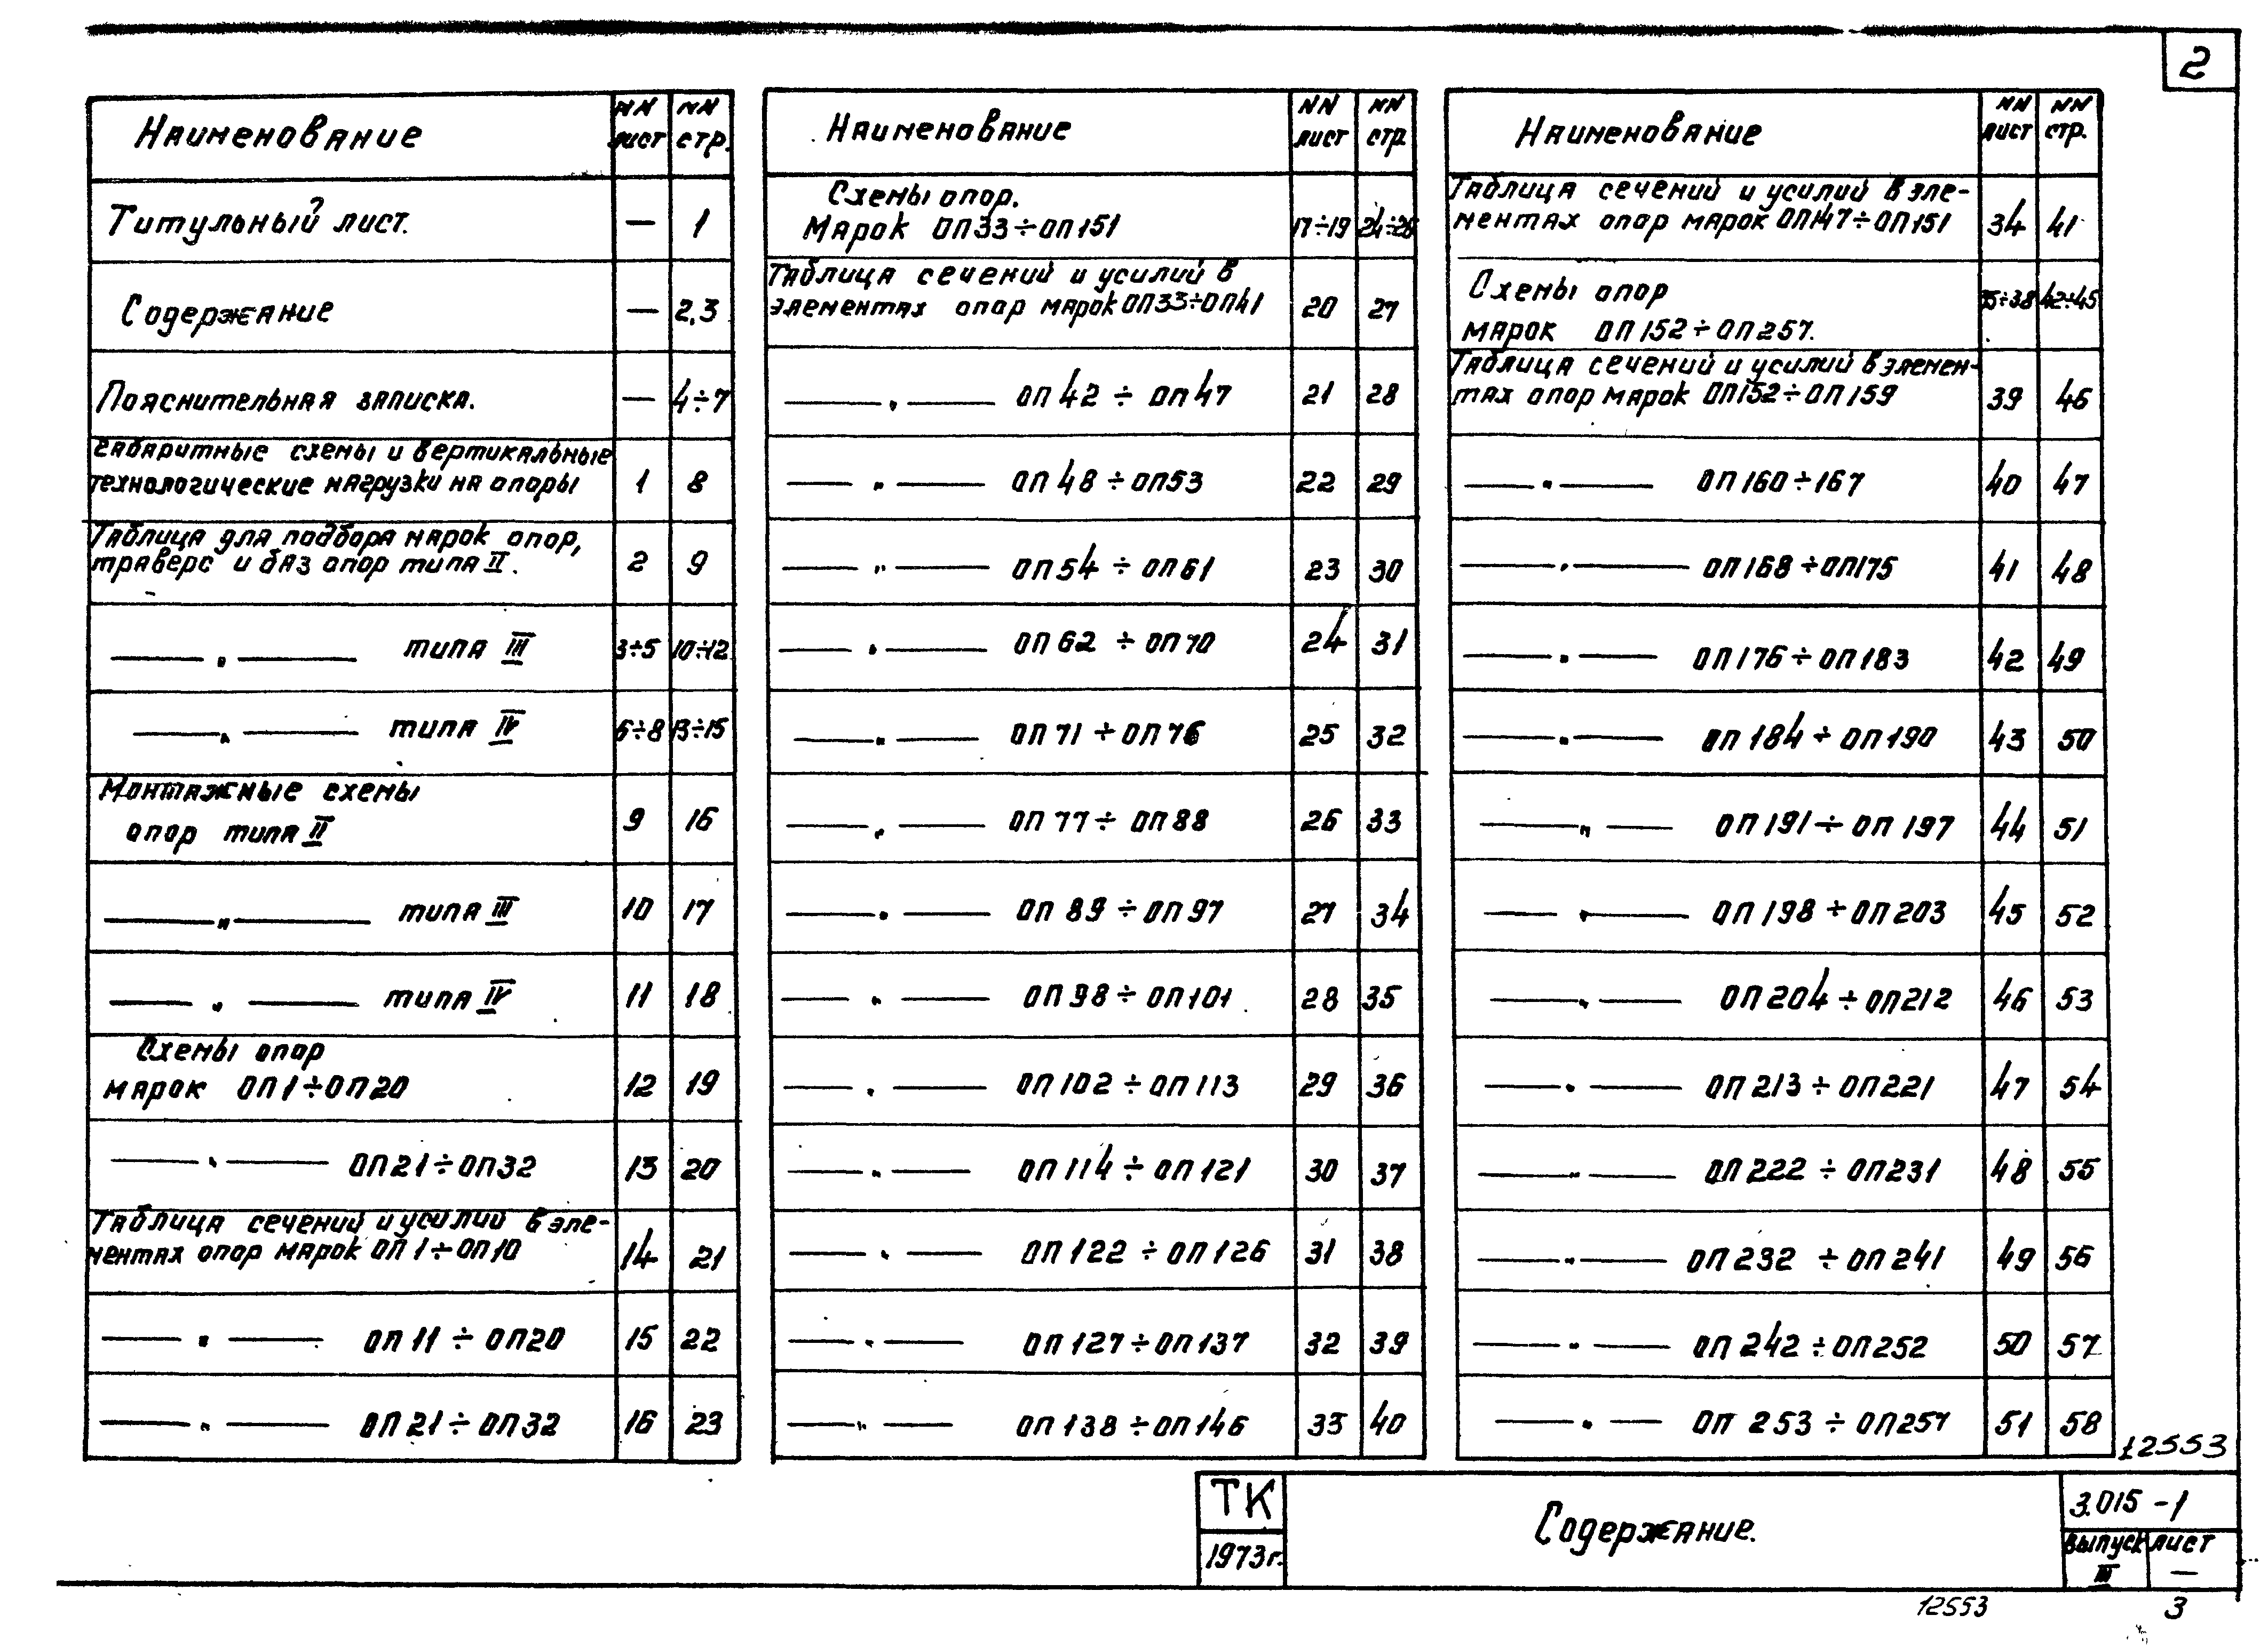 2
Наименование NN лист NN стр.
Титульный лист. — 1
Содержание — 2,3
Пояснительная записка. — 4÷7
Габаритные схемы и вертикальные
технологические нагрузки на опоры 1 8
Таблица для подбора марок опор,
траверс и баз опор типа II. 2 9
—„— типа III 3÷5 10÷12
—„— типа IV 6÷8 13÷15
Монтажные схемы
опор типа II 9 16
—„— типа III 10 17
—„— типа IV 11 18
Схемы опор
марок ОП1÷ОП20 12 19
—„— ОП21÷ОП32 13 20
Таблица сечений и усилий в эле-
ментах опор марок ОП1÷ОП10 14 21
—„— ОП11÷ОП20 15 22
—„— ОП21÷ОП32 16 23
Наименование NN лист NN стр
Схемы опор.
Марок ОП33÷ОП151 17÷19 24÷26
Таблица сечений и усилий в
элементах опор марок ОП33÷ОП41 20 27
—„— ОП42÷ОП47 21 28
—„— ОП48÷ОП53 22 29
—„— ОП54÷ОП61 23 30
—„— ОП62÷ОП70 24 31
—„— ОП71÷ОП76 25 32
—„— ОП77÷ОП88 26 33
—„— ОП89÷ОП97 27 34
—„— ОП98÷ОП101 28 35
—„— ОП102÷ОП113 29 36
—„— ОП114÷ОП121 30 37
—„— ОП122÷ОП126 31 38
—„— ОП127÷ОП137 32 39
—„— ОП138÷ОП146 33 40
Наименование NN лист NN стр.
Таблица сечений и усилий в эле-
ментах опор марок ОП147÷ОП151 34 41
Схемы опор
марок ОП152÷ОП257. 35÷38 42÷45
Таблица сечений и усилий в элемен-
тах опор марок ОП152÷ОП159 39 46
—„— ОП160÷167 40 47
—„— ОП168÷ОП175 41 48
—„— ОП176÷ОП183 42 49
—„— ОП184÷ОП190 43 50
—„— ОП191÷ОП197 44 51
—„— ОП198÷ОП203 45 52
—„— ОП204÷ОП212 46 53
—„— ОП213÷ОП221 47 54
—„— ОП222÷ОП231 48 55
—„— ОП232÷ОП241 49 56
—„— ОП242÷ОП252 50 57
—„— ОП253÷ОП257 51 58
12553
ТК
1973г.
Содержание.
3.015-1
выпуск лист
III —
12553 3